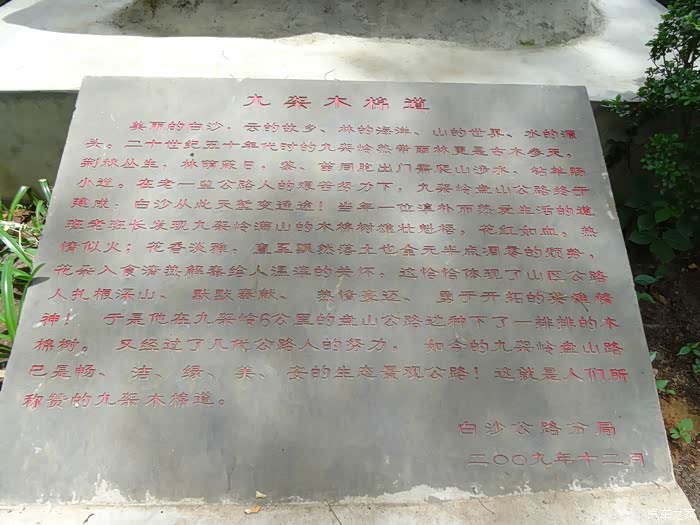 九架木棉道
美丽的白沙，云的故乡、林的海洋、山的世界、水的源
头。二十世纪五十年代时的九架岭热带雨林更是古木参天，
荆棘丛生，林荫蔽日，黎、苗同胞出门需爬山涉水，钻羊肠
小道。在老一辈公路人的艰苦努力下，九架岭盘山公路终于
建成，白沙从此天堑变通途！当年一位淳朴而热爱生活的道
班老班长发现九架岭满山的木棉树雄壮魁梧，花红如血，热
情似火；花香淡雅，直至飘然落土也全无半点凋零的颓势，
花朵入食清热解暑给人湿滨的关怀，这恰恰体现了山区公路
人扎根深山、默默奉献、热情豪迈、勇于开拓的英雄情
神！于是他在九架岭6公里的盘山公路边种下了一排排的木
棉树。又经过了几代公路人的努力，如今的九架岭盘山路
已是畅、洁、绿、美、安的生态景观公路！这就是人们所
称赞的九架木棉道。
白沙公路分局
二〇〇九年十二月